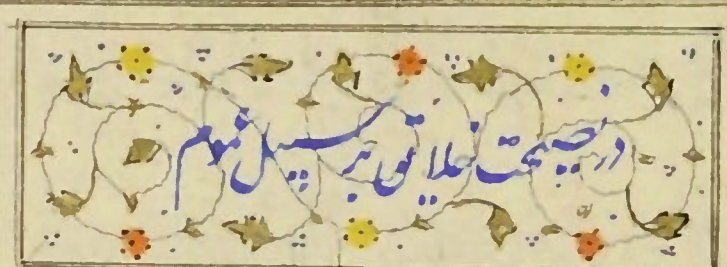 در نصیحت خلایق بر سبیل عموم